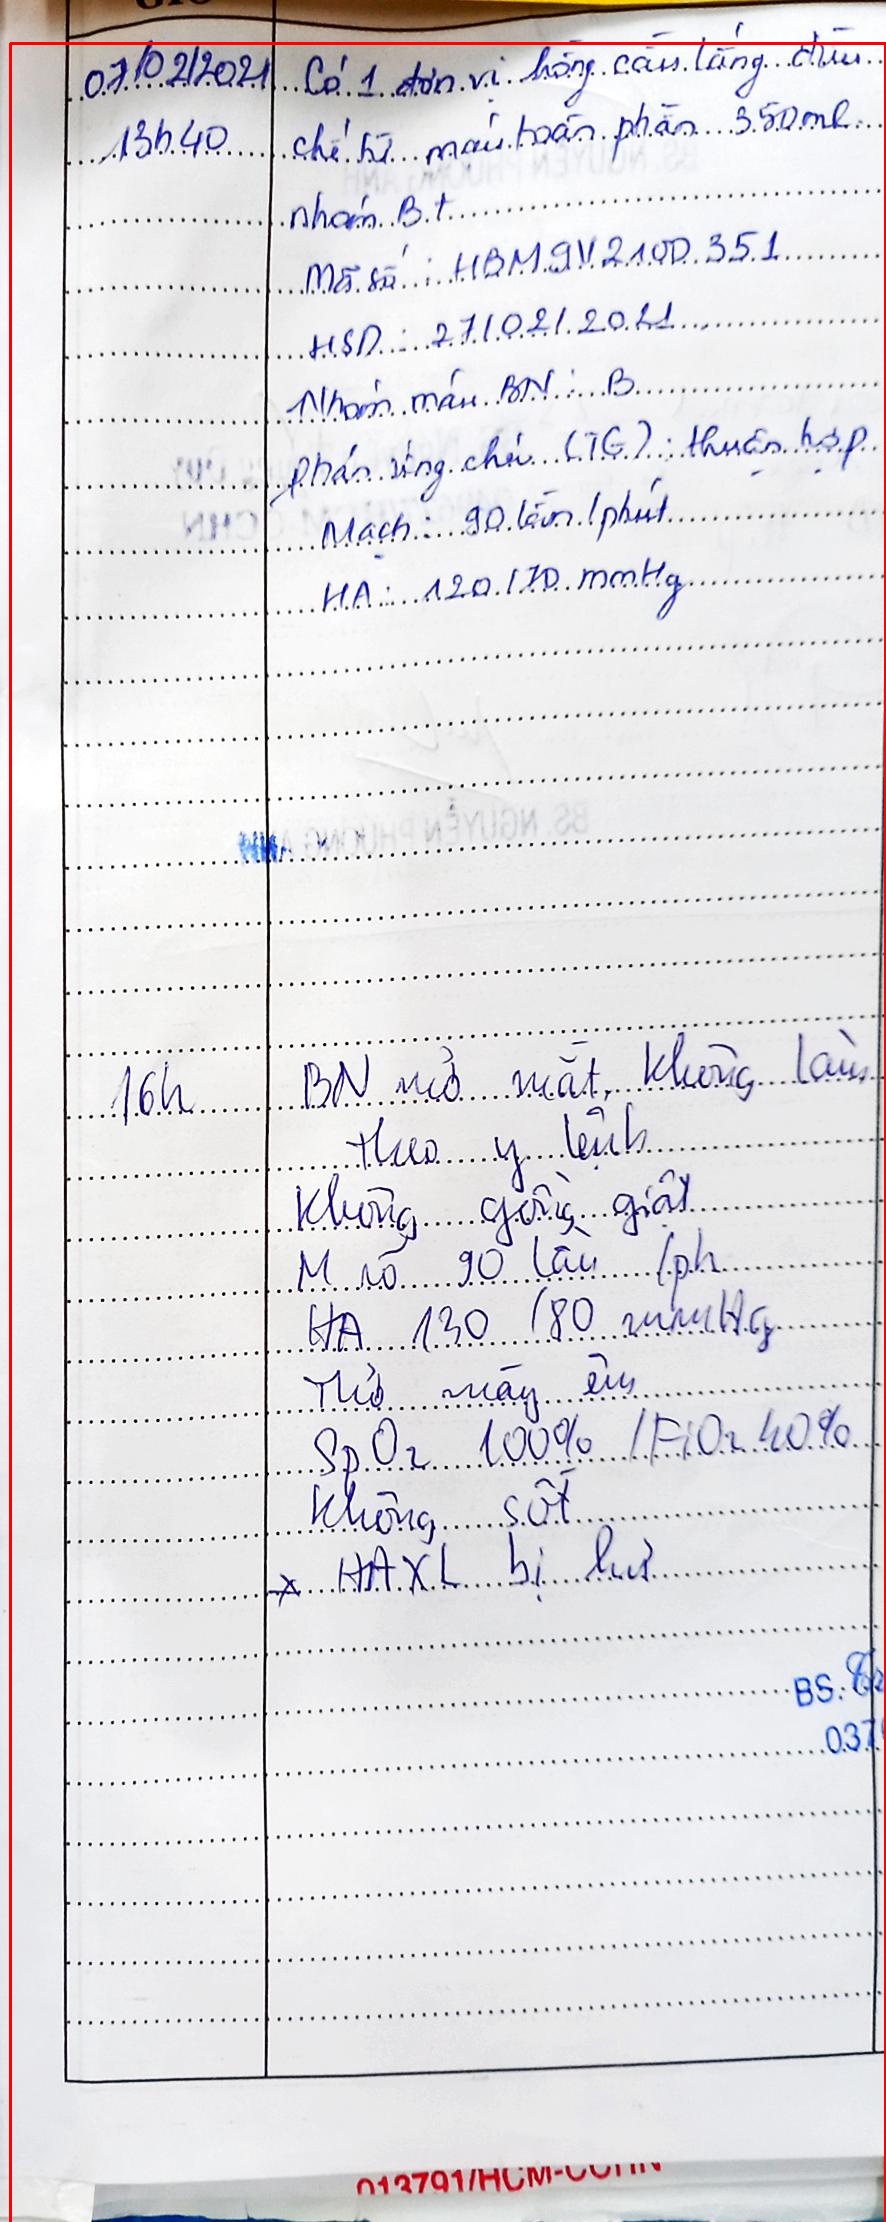 07/02/2021 Có 1 đơn vị hồng cầu lắng điều
13h40 chế từ máu toàn phần 350ml
nhóm B+
Mã số: HBM9V2100351
HSD: 27/02/2021
Nhóm máu BN: B
phản ứng chéo (TG): thuận hợp
Mạch: 90 lần/phút
HA: 120/70 mmHg
BS. NGUYỄN PHƯƠNG ANH
16h BN mở mắt, không làm
theo y lệnh
Không gồng giật
M rõ 90 lần/ph
HA 130/80 mmHg
Thở máy êm
SpO2 100% / FiO2 40%
Không sốt
* HAXL bị hư
BS.
037
013791/HCM-CCHN